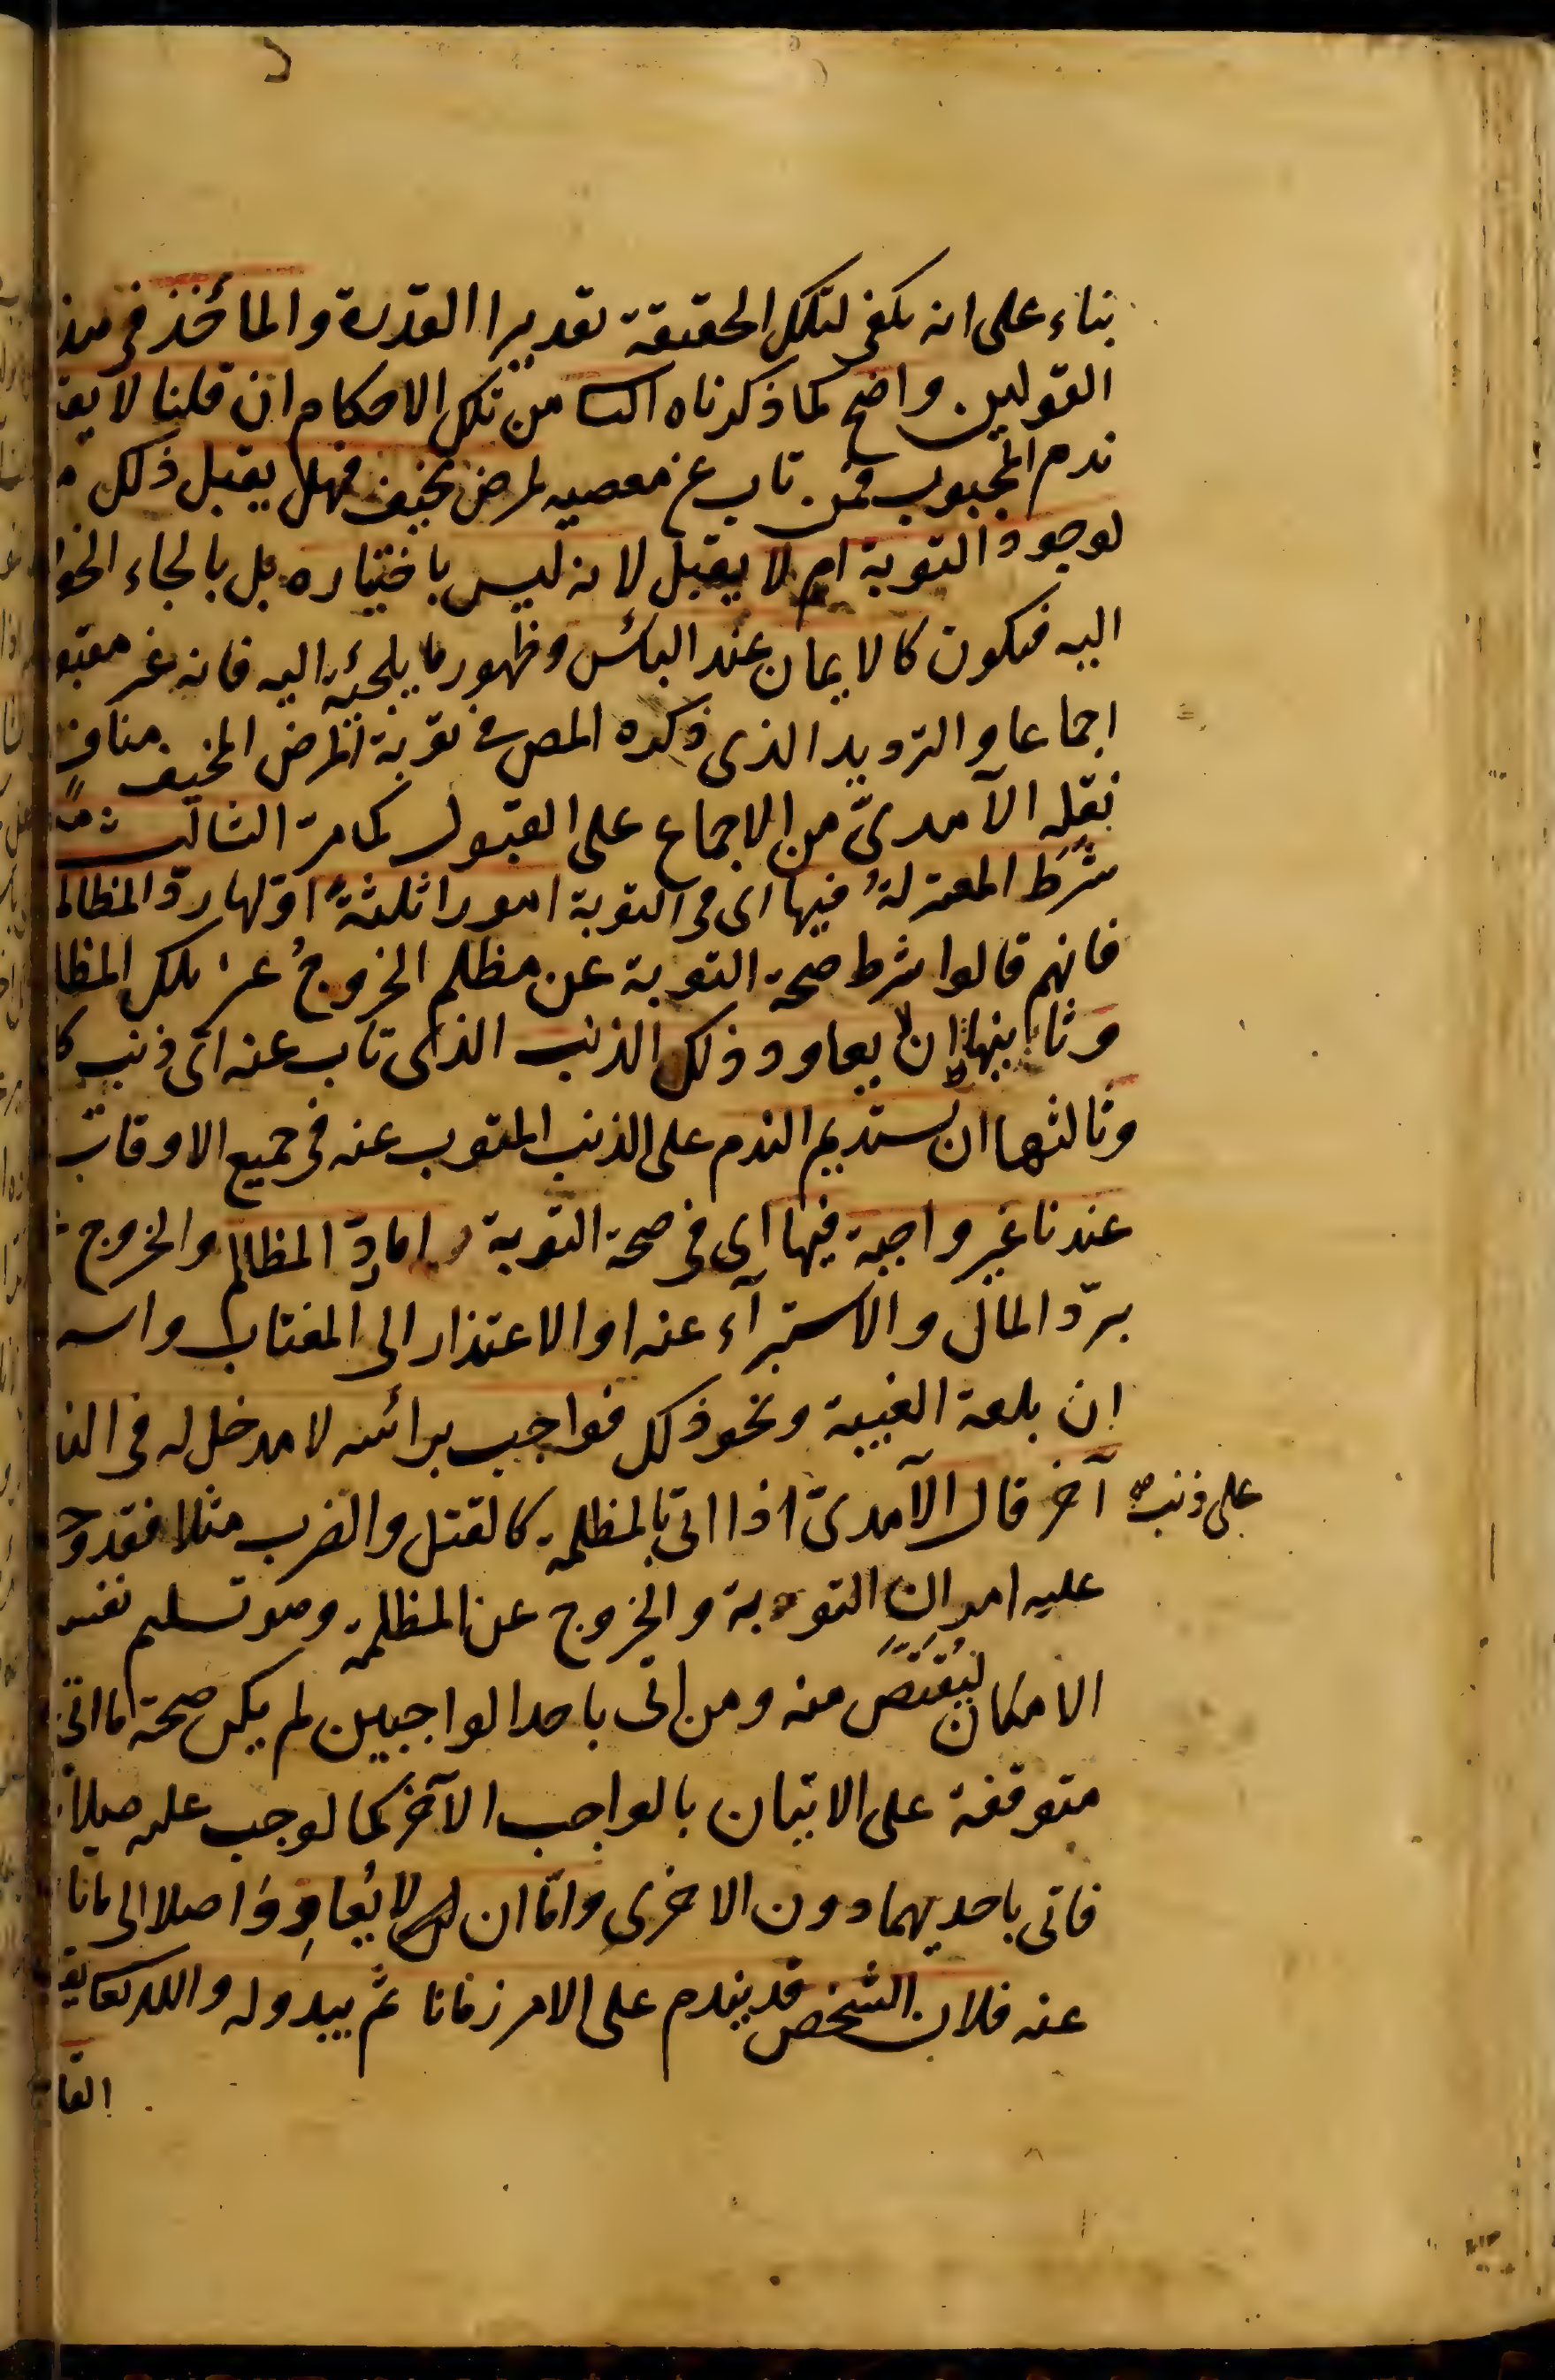 بناء على انه يكفى لتلك الحقيقة تقديرا القدرة والمأخذ فى هذ
القولين واضح لما ذكرناه الثا من تلك الاحكام ان قلنا لا يقـ
ندم المجبوب فمن تاب عن معصيه لمرض مخيف فهل يقبل ذلك
لوجود التوبة ام لا يقبل لانه ليس باختياره بل بالجاء الخو
اليه فيكون كالايمان عند البأس وظهور ما يلجئه اليه فانه غير مقبو
اجماعا والترديد الذى ذكره المص فى توبة المرض المخيف مناف
نقله الآمدىّ من الاجماع على القبول كما مر الثالث
شرط المعتزلةُ فيها اى فى التوبة امورا ثلثةً اوّلها ردّ المظالم
فانهم قالوا شرط صحة التوبة عن مظلم الخروجُ عن تلك المظا
وثانيها ان لا يعاود ذلك الذنب الذى تاب عنه اىّ ذنب كا
وثالثها ان يستديم الندم على الذنب المتوب عنه فى جميع الاوقات
عندنا غير واجبة فيها اى فى صحة التوبة اما ردّ المظالم والخروج
بردّ المال والاستبرآء عنه او الاعتذار الى المغتاب واسـ
ان بلغه الغيبة ونحو ذلك فواجب برائسه لا مدخل له فى الند
على ذنب صح
آخر قال الآمدىّ اذا اتى بالمظلمة كالقتل والضرب مثلا فقد وجـ
عليه امران التوبة والخروج عن المظلمة وهو تسليم نفسـ
الامكان ليُقتصّ منه ومن اتى باحد الواجبين لم يكن صحة ما اتى
متوقفة على الاتيان بالواجب الآخر كما لو وجب عليه صلا
فاتى باحديهما دون الاخرى وامّا ان لا يُعاوِدَ اصلا الى ما تا
عنه فلان الشخص قد يندم على الامر زمانا ثم يبدو له والله تعا
القا